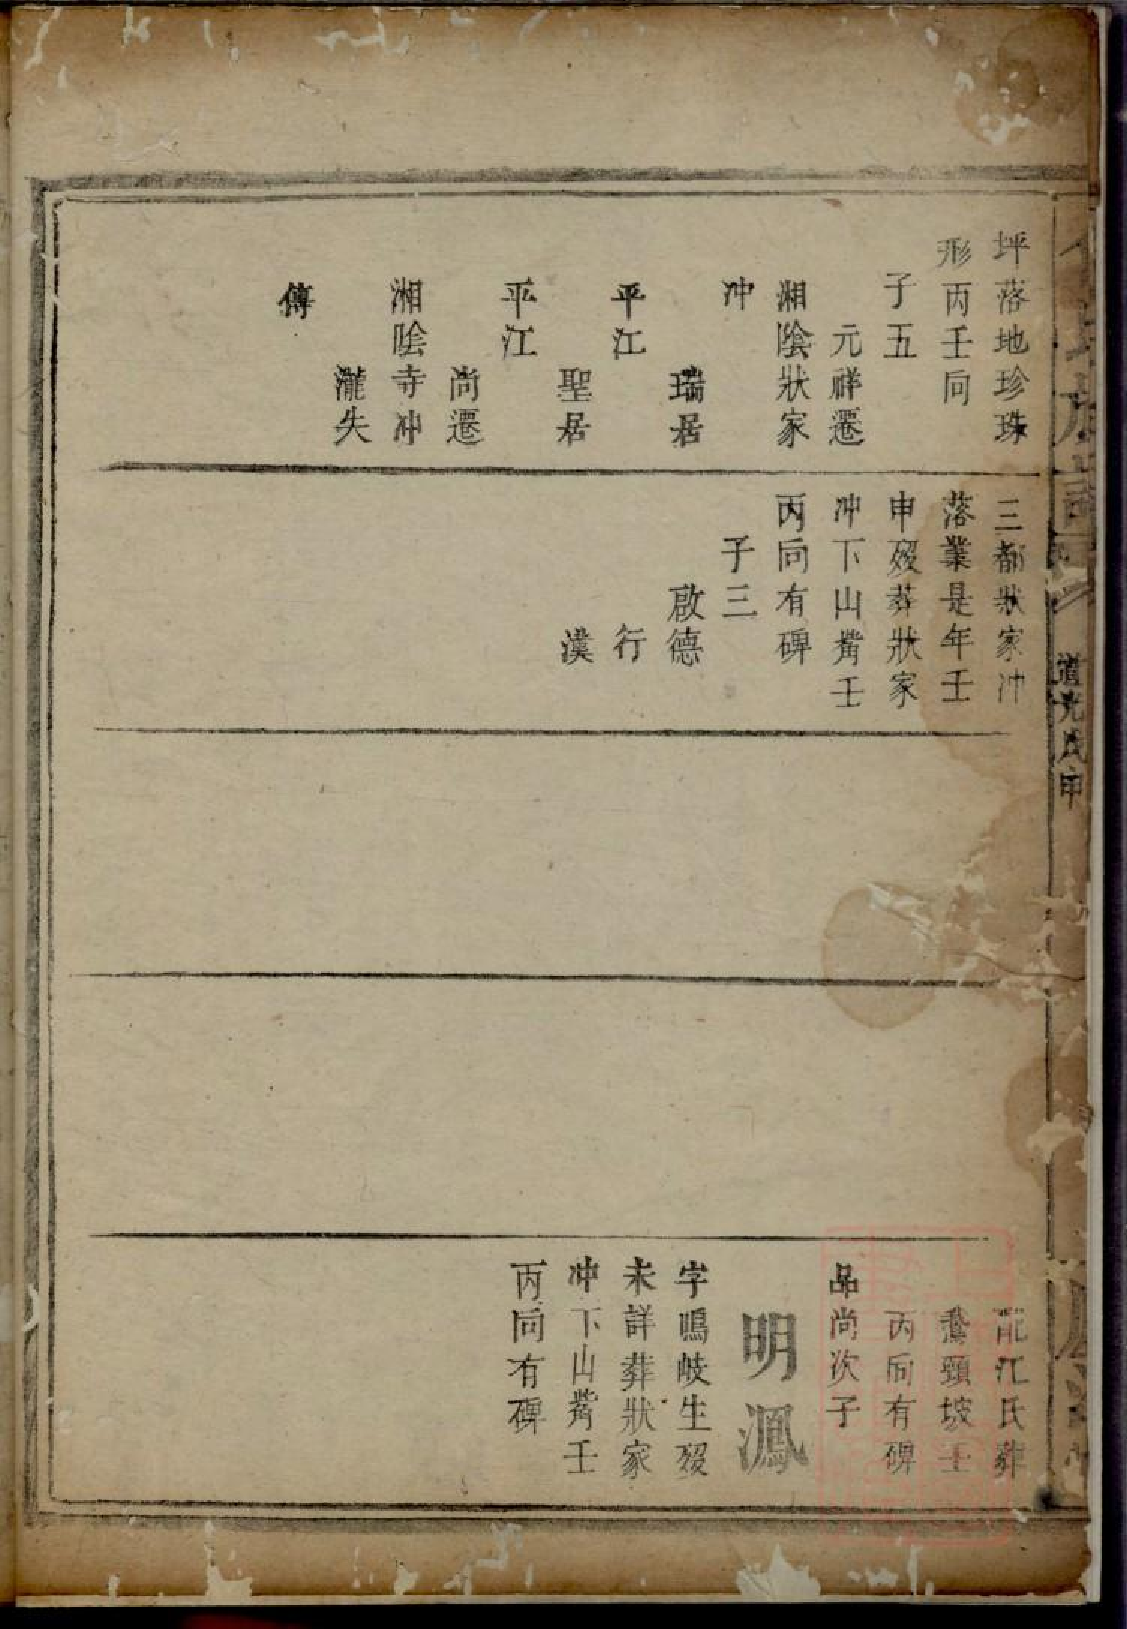 坪落地珍珠
形丙壬向
子五
元祥遷
湘陰狀家
冲
瑞居
平江
聖居
平江
尚遷
湘陰寺冲
瀧失
傳
三都狀家冲
落業是年壬
申歿葬狀家
冲下山觜壬
丙向有碑
子三
啟德
行
漢
配江氏葬
鵞頸坡壬
丙向有碑
品尚次子
明鳳
字鳴岐生歿
未詳葬狀家
冲下山觜壬
丙向有碑
道光